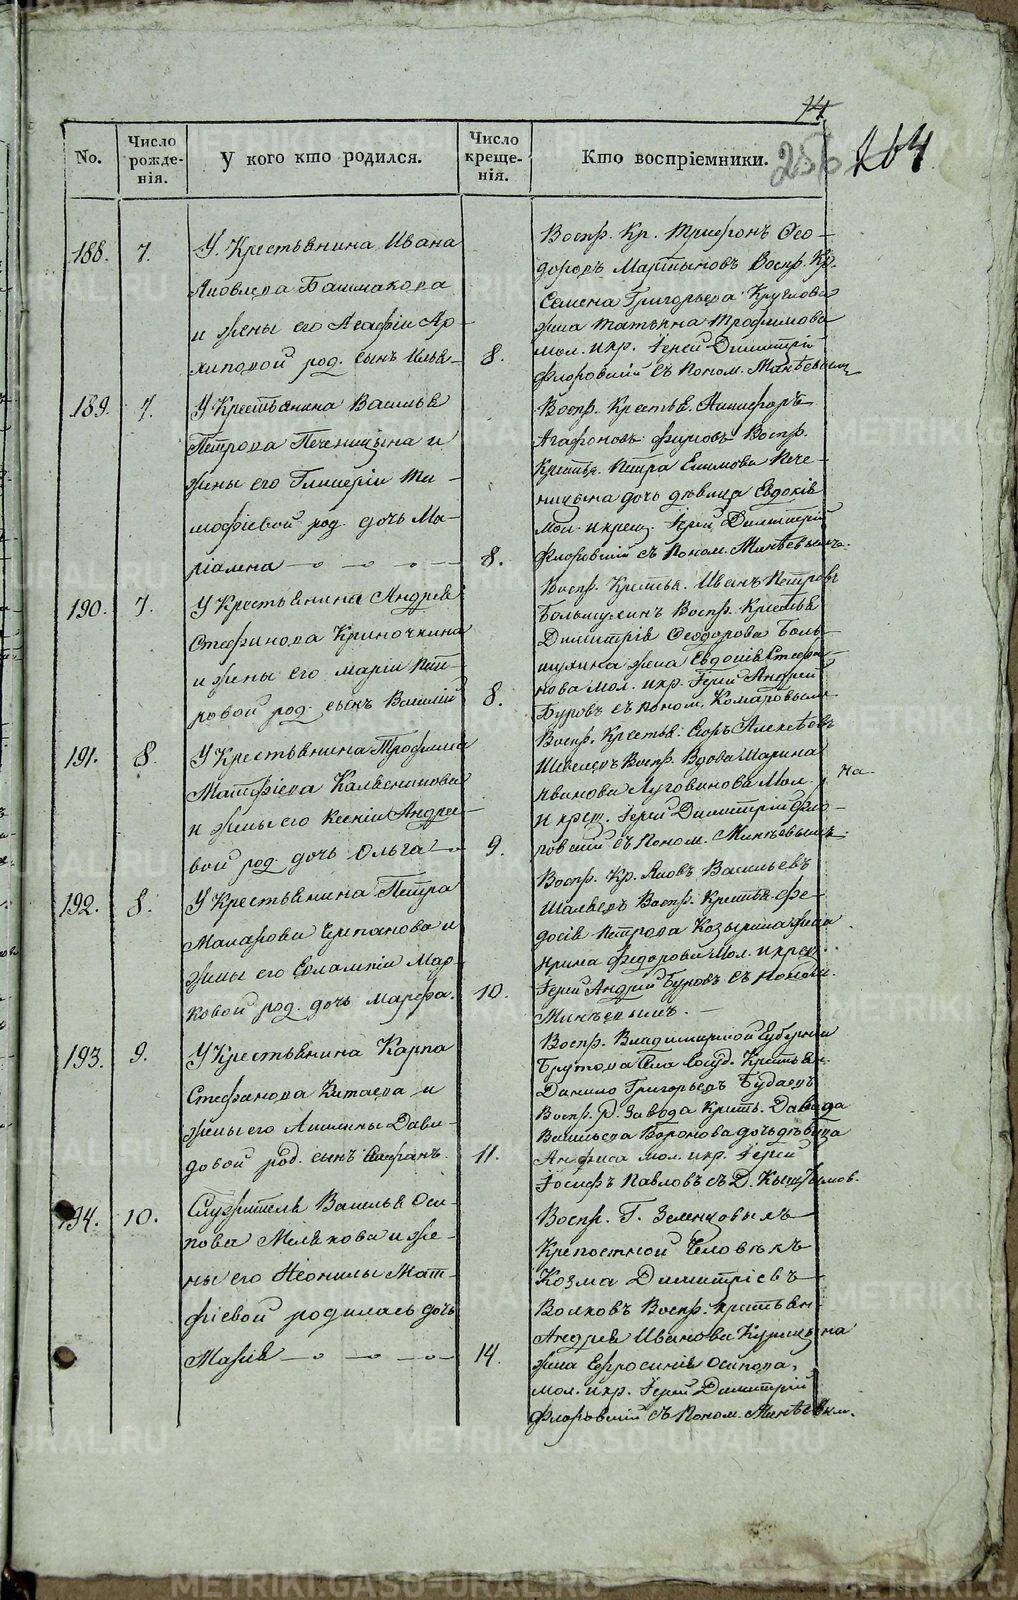 74
No.
Число рожде-нія.
У кого кто родился.
Число креще-нія.
Кто воспріемники.
256
164
188. 7. У Крестьянина Ивана
Яковлева Башмакова
и жены его Агафіи Ар-
хиповой род. сынъ Илья- 8.
Воспр. Кр. Трифонъ Ѳео-
доровъ Мартыновъ Воспр. Кр.
Семена Григорьева Круглова
жена Татьяна Трофимова
мол. и кр. Іерей Димитрій
Флоровскій съ Поном. Минѣевымъ
189. 7. У Крестьянина Василья
Петрова Печеницына и
жены его Гликеріи Ти-
мофіевой род. дочь Ма-
ріамна 8.
Воспр. Крестья. Никифоръ
Агафоновъ Воспр.
Крестья. Петра Екимова Пече-
ницына дочь дѣвица Евдокія
Мол. и крещ. Іерей Димитрій
Флоровскій съ Поном. Минѣевымъ.
190. 7. У Крестьянина Андрея
Стефанова Криночкина
и жены его Маріи Пет-
ровой род. сынъ Василій 8.
Воспр. Крестья. Иванъ Петровъ
Большухинъ Воспр. Крестья
Димитрія Ѳеодорова Боль-
шухина жена Евдокія Стефа-
нова мол. и кр. Іерей Андрей
Буровъ съ поном. Комаровымъ
191. 8. У Крестьянина Трофима
Матфіева
и жены его Ксеніи Андре-
вой род. дочь Ольга 9.
Воспр. Крестья. Егоръ Алексѣевъ
Шевелевъ Воспр. Вдова Марина
Иванова Луговинова Мол.
и крещ. Іерей Димитрій Фло-
ровскій съ Поном. Минѣевымъ.
на
192. 8. У Крестьянина Петра
Макарова Черпанова и
жены его Евлампіи Мар-
ковой род. дочь Марфа. 10.
Воспр. Кр. Яковъ Васильевъ
Воспр. Крестья. Ѳе-
досія Петрова Козырина жена
Ирина Федорова Мол. и крещ.
Іерей Андрей Буровъ съ поном.
Минѣевымъ.
193. 9. У Крестьянина Карпа
Стефанова Китаева и
жены его Акилины Дави-
довой род. сынъ 11.
Воспр. Владимирской Губерніи
Села Госуд. Крестьян.
Данило Григорьевъ Будаевъ
Воспр. Р. Завода Крестья. Давида
Васильева Воронова дочь дѣвица
Анфиса мол. и кр. Іерей
Іосифъ Павловъ съ Д.
194. 10. Служителя Василья Оси-
пова Мелехова и же-
ны его Неонилы Мат-
фіевой родилась дочь
Марія 14.
Воспр. Г. Зеленцовыхъ
Крепостной Человѣкъ
Козма Димитріевъ
Волковъ Воспр. крестьян-
Андрея Иванова Курицына
жена Евфросинія Осипова,
мол. и кр. Іерей Димитрій
Флоровскій съ Поном. Минѣевым.
METRIKI.GASO-URAL.RU